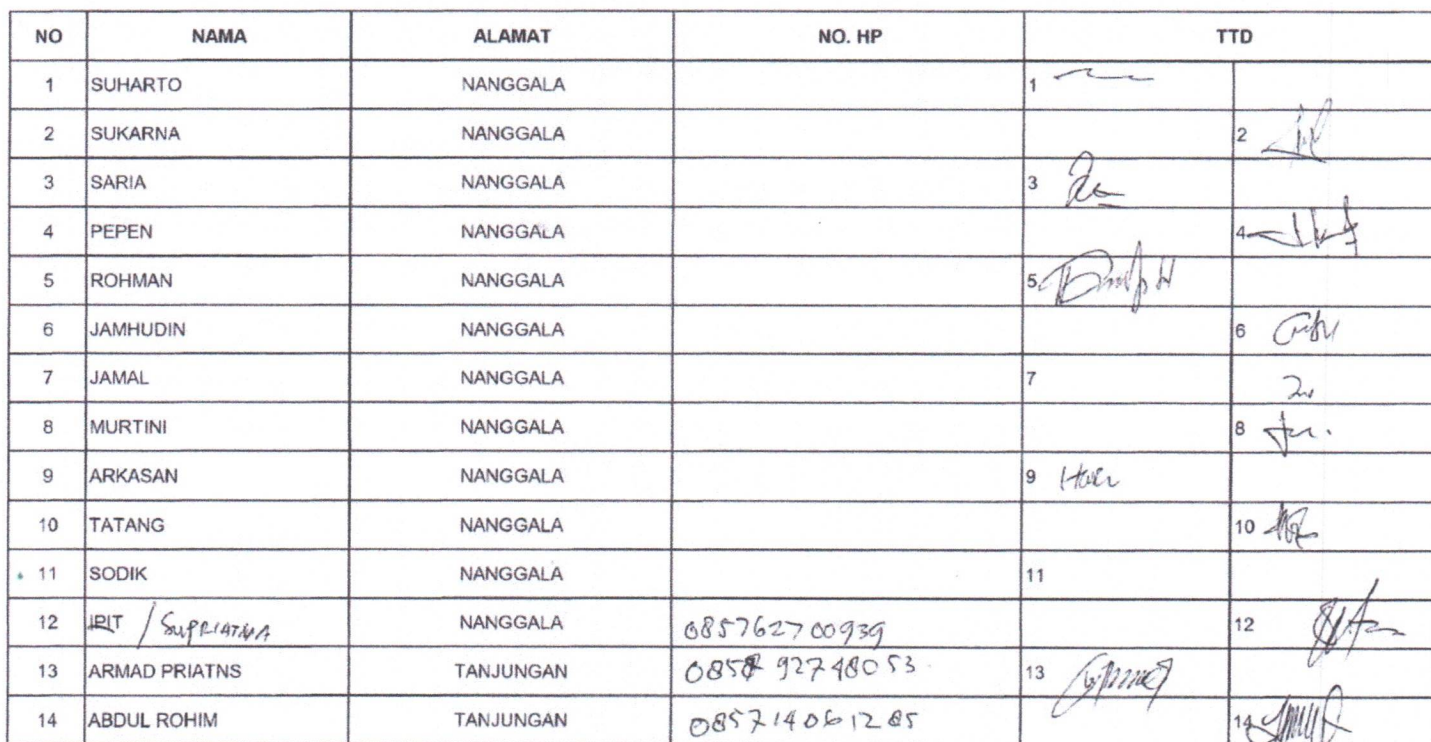 NO NAMA ALAMAT NO. HP TTD
1 SUHARTO NANGGALA 1
2 SUKARNA NANGGALA 2
3 SARIA NANGGALA 3
4 PEPEN NANGGALA 4
5 ROHMAN NANGGALA 5
6 JAMHUDIN NANGGALA 6
7 JAMAL NANGGALA 7
8 MURTINI NANGGALA 8
9 ARKASAN NANGGALA 9
10 TATANG NANGGALA 10
11 SODIK NANGGALA 11
12 IPIT / SUPRIATNA NANGGALA 085762700939 12
13 ARMAD PRIATNS TANJUNGAN 13
14 ABDUL ROHIM TANJUNGAN 085714061285 14